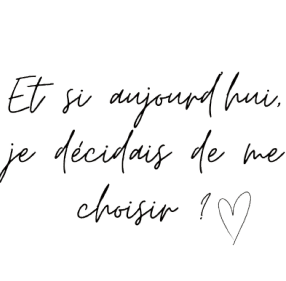 Et si aujourd'hui,
je décidais de me
choisir ?